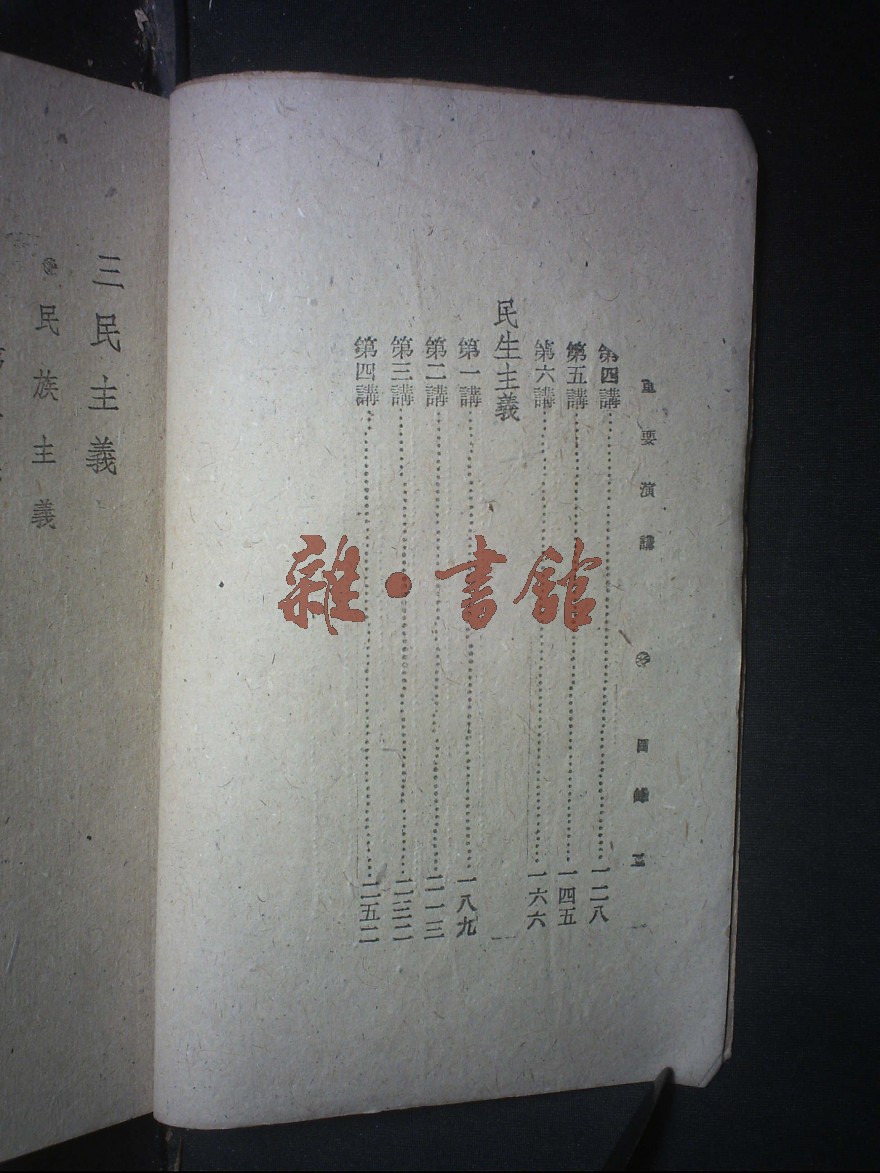 重要演講 目錄 一
第四講……一二八
第五講……一四五
第六講……一六六
民生主義
第一講……一八九
第二講……二一三
第三講……二三二
第四講……二五二
三民主義
民族主義
雜·書館